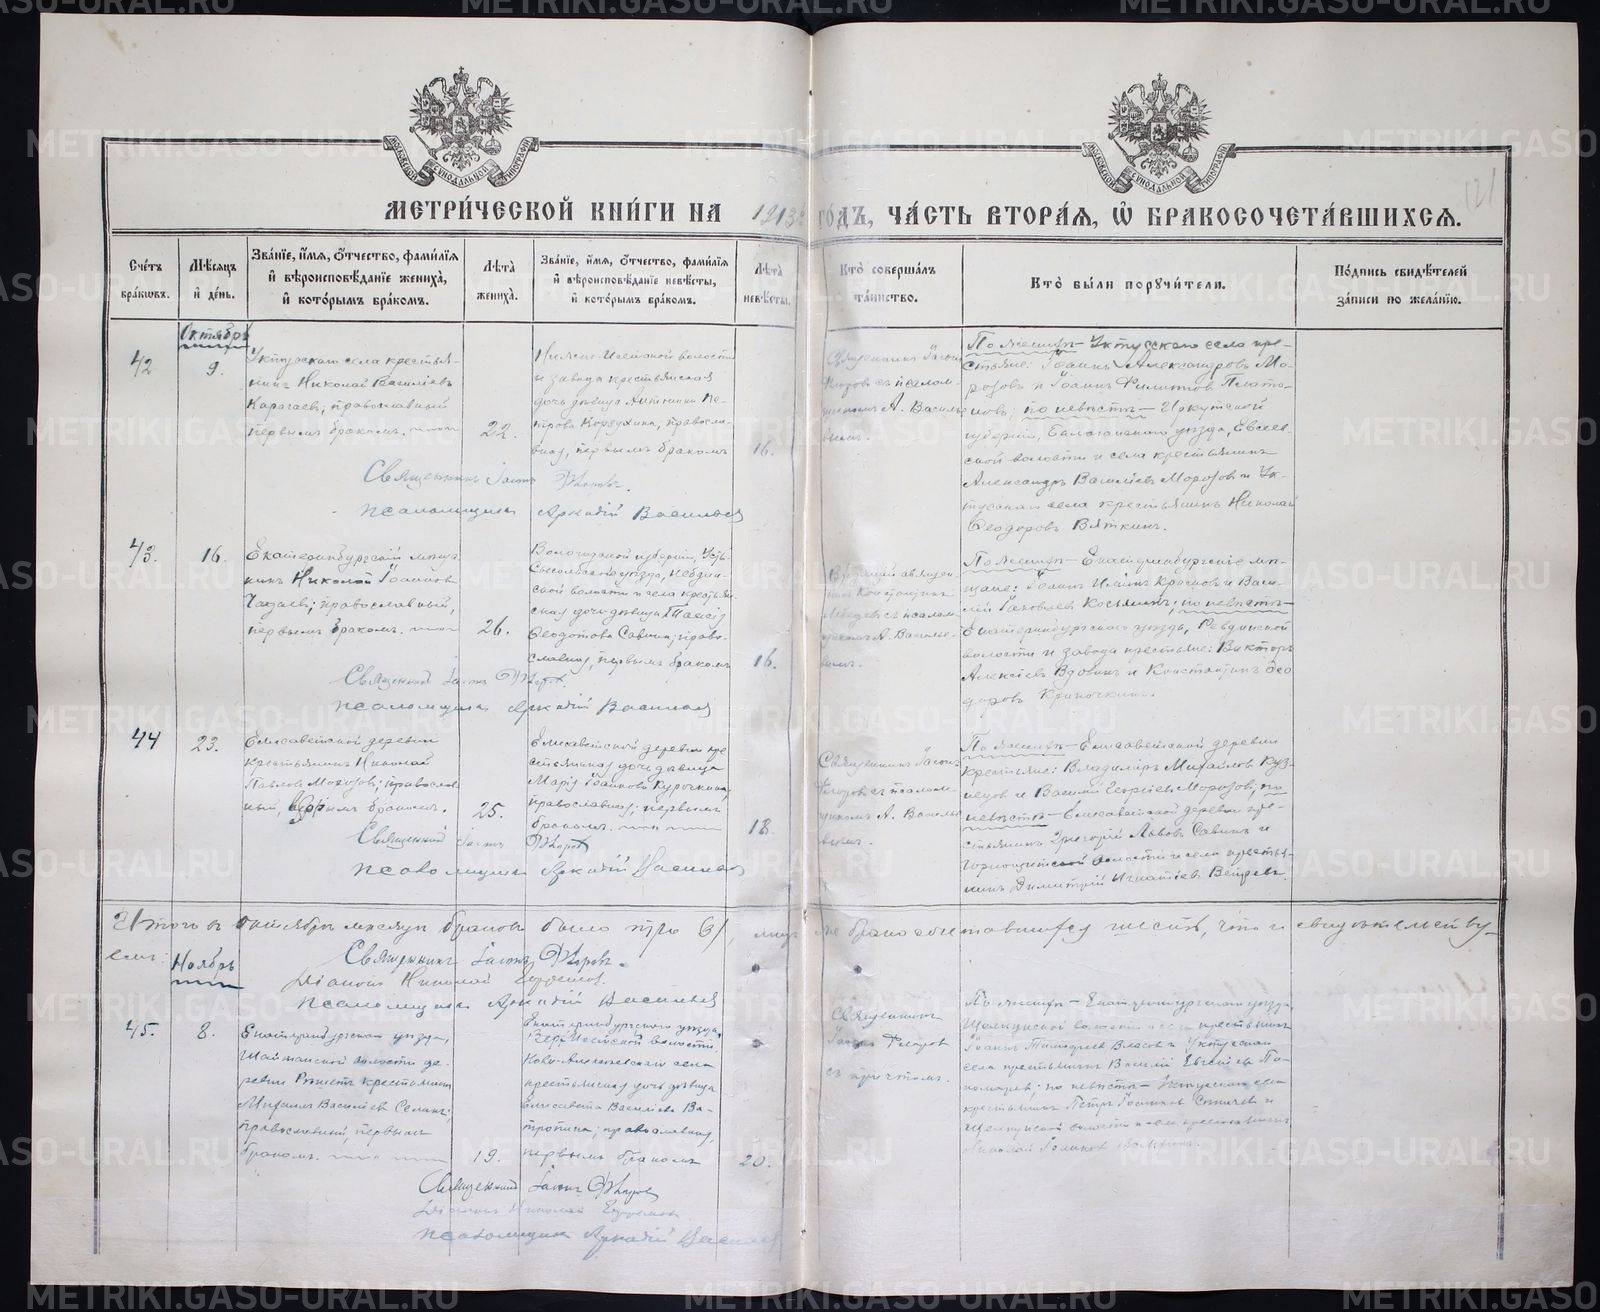 МЕТРИ́ЧЕСКОЙ КНИ́ГИ НА 1913 ГО́ДЪ, ЧА́СТЬ ВТОРА́Я, Ѡ҆ БРАКОСОЧЕТА́ВШИХСЯ.
121
Сче́тъ бра́кѡвъ.
Мѣ́сяцъ и҆ де́нь.
Зва́нїе, и҆́мя, ѻ҆́тчество, фами́лїя и҆ вѣроисповѣ́данїе жениха̀, и҆ кото́рымъ бра́комъ.
Лѣ́та жениха̀.
Зва́нїе, и҆́мя, ѻ҆́тчество, фами́лїя и҆ вѣроисповѣ́данїе невѣ́сты, и҆ кото́рымъ бра́комъ.
Лѣ́та невѣ́сты.
Кто̀ соверша́лъ та́инство.
Кто̀ бы́ли порꙋчи́тели.
По́дпись свидѣ́телей за́писи по жела́нїю.
Октябрь
42
9.
Уктусскаго села крестья-
нинъ Николай Василіевъ
Карагаевъ, православный
первымъ бракомъ.
22.
волости
и завода крестьянская
дочь дѣвица Антонина Пе-
трова Корзухина, правосла-
вная, первымъ бракомъ
16.
Священникъ Іаковъ
Флоровъ съ псалом-
щикомъ А. Василье-
вымъ.
По женихѣ — Уктусскаго села кре-
стьяне: Іоаннъ Александровъ Мо-
розовъ и Іоаннъ Филиповъ Плато-
новъ; по невѣстѣ — Иркутской
губерніи, Балаганскаго уѣзда, Евсеев-
ской волости и села крестьянинъ
Александръ Василіевъ Морозовъ и Ук-
тусскаго села крестьянинъ Николай
Ѳеодоровъ Вяткинъ.
Священникъ Іаковъ Флоровъ.
Псаломщикъ Аркадій Васильевъ
43
16.
Екатеринбургскій мѣща-
нинъ Николай Іоанновъ
православный,
первымъ бракомъ.
26.
Вологодской губерніи, Усть-
Сысольскаго уѣзда,
ской волости и села крестьян-
ская дочь дѣвица Таисія
Ѳеодотова Савина, право-
славная, первымъ бракомъ
16.
священ-
никъ Константинъ
Лебедевъ съ псалом-
щикомъ А. Василье-
вымъ.
По женихѣ — Екатеринбургскіе мѣ-
щане: Іоаннъ Ильинъ Красновъ и Васи-
лій Іаковлевъ Косьминъ; по невѣстѣ —
Екатеринбургскаго уѣзда, Ревдинской
волости и завода крестьяне: Викторъ
Алексіевъ Вдовинъ и Константинъ Ѳео-
доровъ
Священникъ Іаковъ Флоровъ
Псаломщикъ Аркадій Васильевъ
44
23.
Елисаветской деревни
крестьянинъ Николай
Павловъ Морозовъ, православ-
ный, вторымъ бракомъ.
25.
Елисаветской деревни кре-
стьянская дочь дѣвица
Марія Іоаннова Курочкина,
православная, первымъ
бракомъ.
18.
Священникъ Іаковъ
Флоровъ съ псалом-
щикомъ А. Василье-
вымъ.
По женихѣ — Елисаветской деревни
крестьяне: Владиміръ Михайловъ Куз-
нецовъ и Василій Георгіевъ Морозовъ; по
невѣстѣ — Елисаветской деревни кре-
стьянинъ Григорій Львовъ Савинъ и
Горнощитской волости и села крестья-
нинъ Димитрій Игнатіевъ
Священникъ Іаковъ Флоровъ
Псаломщикъ Аркадій Васильевъ
Итого въ октябрѣ мѣсяцѣ браковъ было три (3), лицъ же бракосочетавшихся шесть, что и свидѣтельству-
емъ:
Священникъ Іаковъ Флоровъ.
Діаконъ Николай
Псаломщикъ Аркадій Васильевъ
Ноябрь
45.
8.
Екатеринбургскаго уѣзда,
волости де-
ревни крестьянинъ
Михаилъ Василіевъ
православный, первымъ
бракомъ.
19.
Екатеринбургскаго уѣзда,
волости,
Ново-Алексѣевскаго села
крестьянская дочь дѣвица
Елисавета Василіева Ва-
православная,
первымъ бракомъ
20.
Священникъ
Іаковъ Флоровъ
съ причтомъ.
По женихѣ — Екатеринбургскаго уѣзда,
Щелкунской волости и села крестьянинъ
Іоаннъ Власовъ и Уктусскаго
села крестьянинъ Василій Евгеніевъ По-
номаревъ; по невѣстѣ — Уктусскаго села
крестьянинъ Петръ Іоанновъ и
Щелкунской волости и села крестьянинъ
Николай Іоанновъ
Священникъ Іаковъ Флоровъ
Діаконъ Николай
Псаломщикъ Аркадій Васильевъ
METRIKI.GASO-URAL.RU